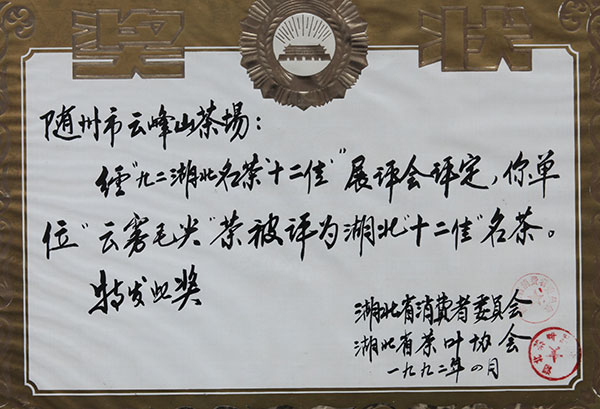 奖 状
随州市云峰山茶場：
经"九二湖北名茶"十二佳"展评会评定，你单
位"云雾毛尖"茶被评为湖北"十二佳"名茶。
特发此奖
湖北省消费者委員会
湖北省茶叶协会
一九九二年四月